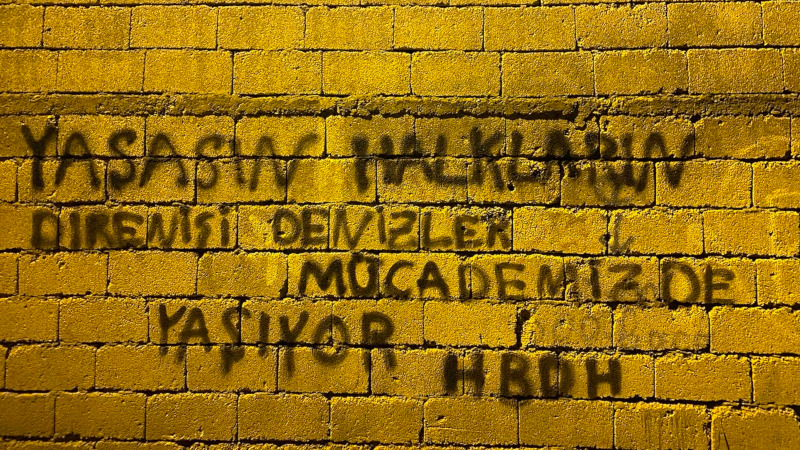 YAŞASIN HALKLARIN
DİRENİŞİ DENİZLER
MÜCADEMİZDE
YAŞIYOR
HBDH